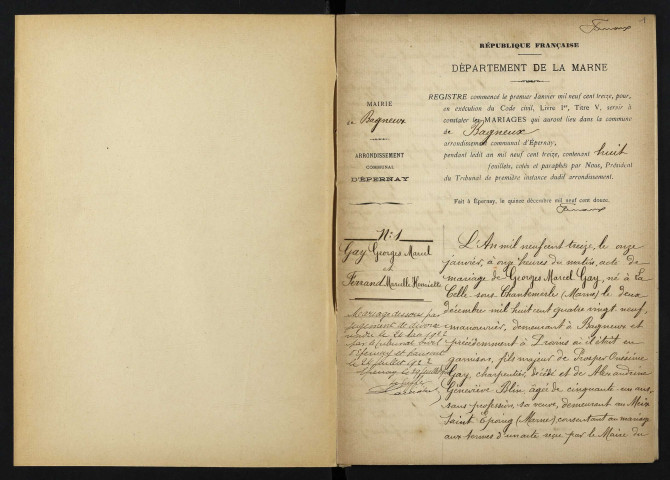 1
RÉPUBLIQUE FRANÇAISE
DÉPARTEMENT DE LA MARNE
MAIRIE
de Bagneux
ARRONDISSEMENT
COMMUNAL
D'ÉPERNAY
REGISTRE commencé le premier Janvier mil neuf cent treize, pour,
en exécution du Code civil, Livre Ier, Titre V, servir à
constater les MARIAGES qui auront lieu dans la commune
de Bagneux
arrondissement communal d'Épernay,
pendant ledit an mil neuf cent treize, contenant huit
feuillets, cotés et paraphés par Nous, Président
du Tribunal de première instance dudit arrondissement.
Fait à Épernay, le quinze décembre mil neuf cent douze.
No 1
Gay Georges Marcel
et
Ferrand Marcelle Henriette
Mariage dissous par
jugement de divorce
rendu le
par le tribunal civil
d'Épernay et transcrit
le juillet
Épernay le juillet
L'An mil neuf cent treize, le onze
janvier, à onze heures du matin, acte de
mariage de Georges Marcel Gay, né à La
Celle sous Chantemerle (Marne) le deux
décembre mil huit cent quatre vingt neuf,
manouvrier, demeurant à Bagneux et
précédemment à Provins où il était en
garnison, fils majeur de Prosper Onésime
Gay, charpentier, décédé et de Alexandrine
Geneviève Blin, âgée de cinquante un ans,
sans profession, sa veuve, demeurant au Meix
Saint Epoing (Marne) consentant au mariage
aux termes d'un acte reçu par le Maire du